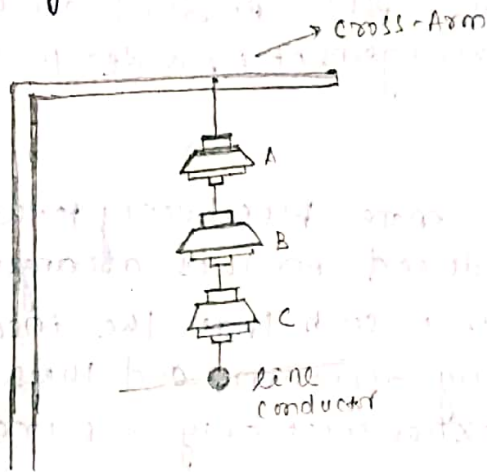 cross-Arm
A
B
C
line
conductor